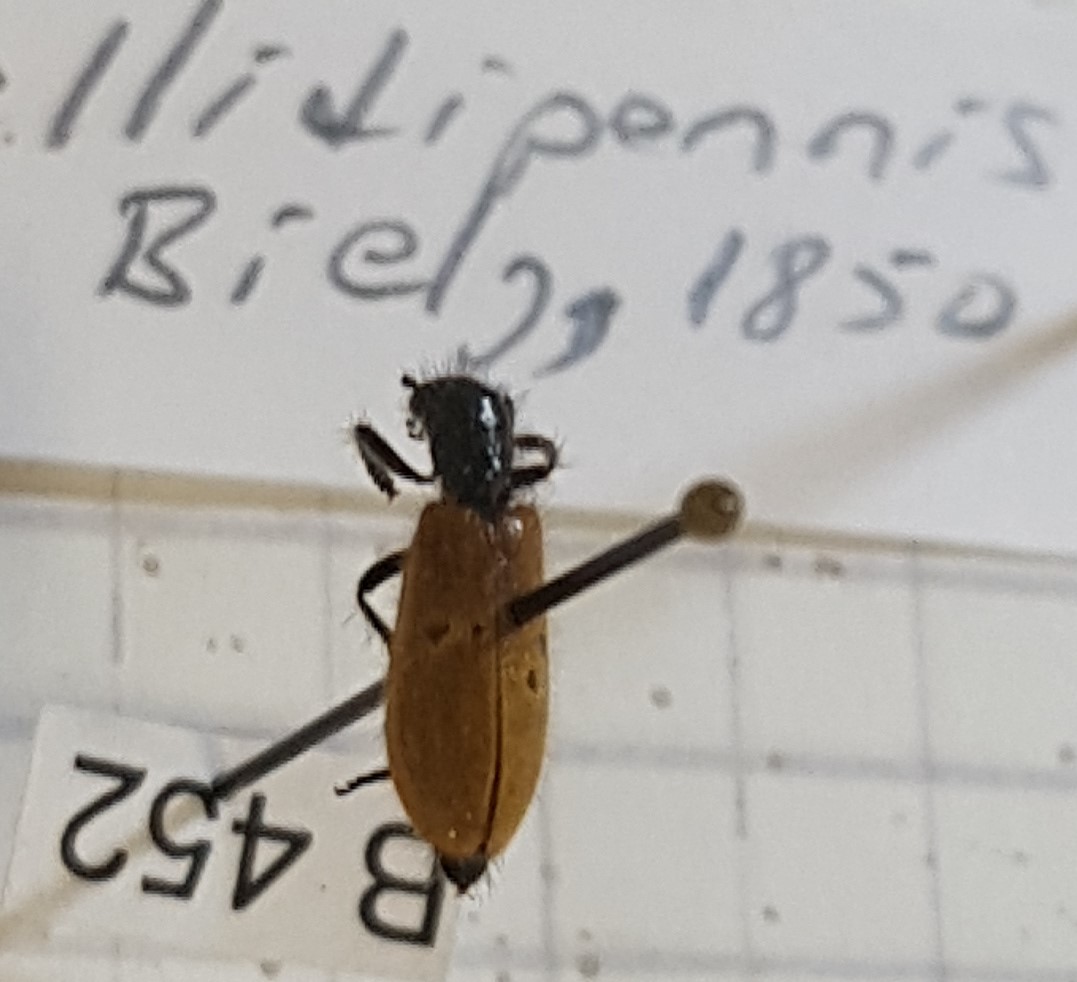 llidipennis
Bielz, 1850
B 452